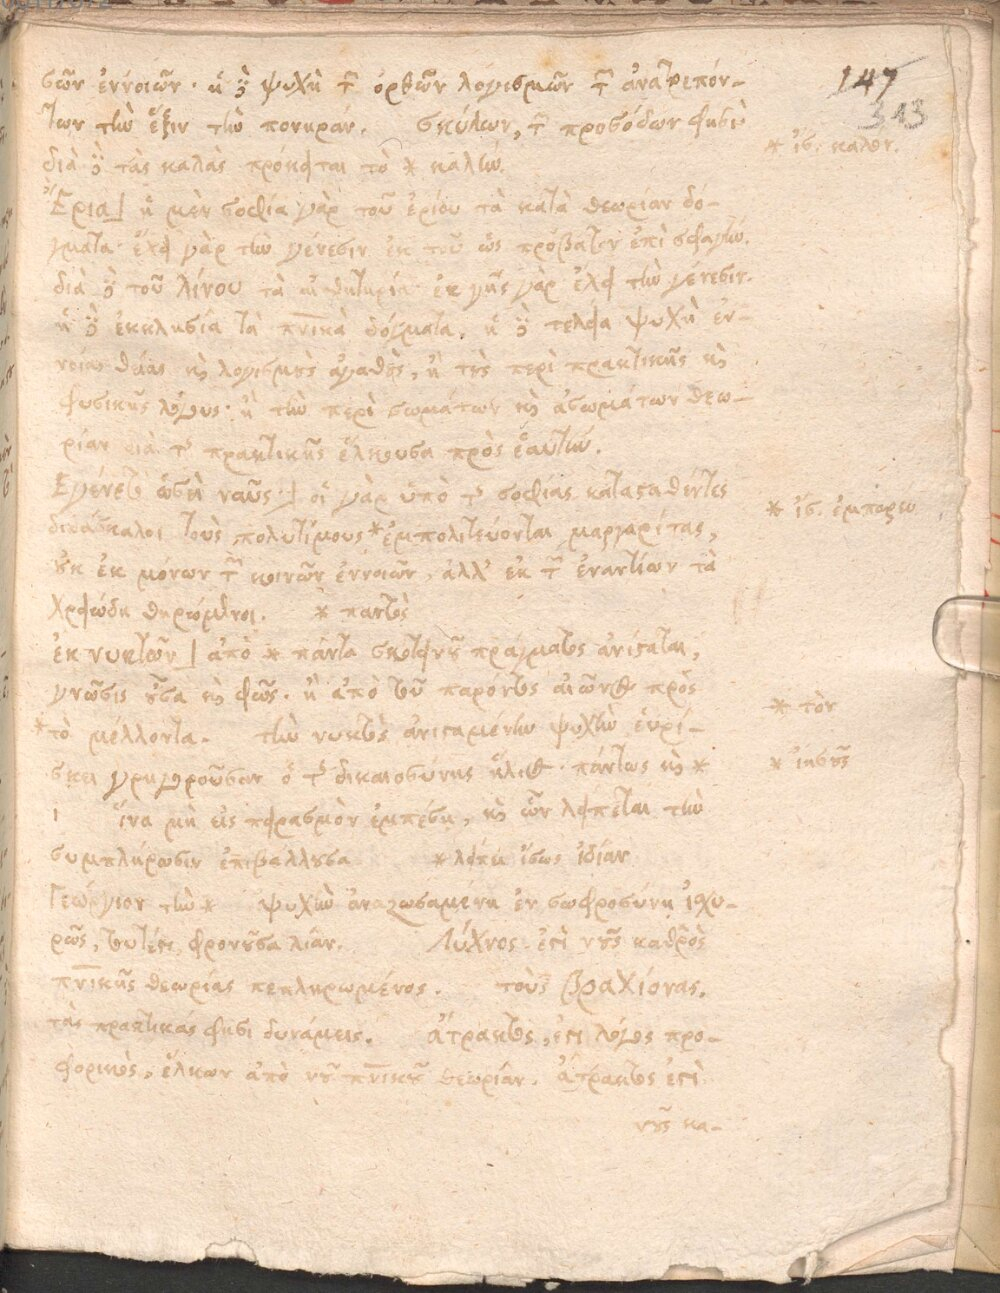 147
313
σεῶν ἐννοιῶν· ἡ δὲ ψυχὴ τῶν ὀρθῶν λογισμῶν τῶν ἀνατρεπόν-
των τὴν ἕξιν τὴν πονηράν. σκύλων, τῶν προσόδων φησὶ
διὰ δὲ τὰς καλὰς πρόκειται τὸ * καλῶν.
* ἴσ. καλθν.
Ἔρια] ἡ μὲν σοφία γὰρ τοῦ ἐρίου τὰ κατὰ θεωρίαν δό-
γματα· ἔχει γὰρ τὴν γένεσιν ἐκ τοῦ ὡς πρόβατον ἐπὶ σφαγήν.
διὰ δὲ τοῦ λίνου τὰ αἰσθητήρια· ἐκ γῆς γὰρ ἔχει τὴν γένεσιν.
ἡ δὲ ἐκκλησία τὰ πνικὰ δόγματα. ἡ δὲ τελεία ψυχὴ ἐν-
νοίας θείας κὶ λογισμοὺς ἀγαθοὺς, ἢ τοὺς περὶ πρακτικῆς κὶ
φυσικῆς λόγους· ἢ τὴν περὶ σωμάτων κὶ ἀσωμάτων θεω-
ρίαν διὰ τῆς πρακτικῆς ἕλκουσα πρὸς ἑαυτήν.
Ἐγένετο ὡσεὶ ναῦς·] οἱ γὰρ ὑπὸ τῆς σοφίας κατασταθέντες
διδάσκαλοι τοὺς πολυτίμους * ἐμπολιτεύονται μαργαρίτας,
* ἴσ. ἐμπορεύ
οὐκ ἐκ μόνων τῶν κοινῶν ἐννοιῶν, ἀλλ' ἐκ τῶν ἐναντίων τὰ
χρειώδη θηρώμενοι. * παντὸς
ἐκ νυκτῶν] ἀπὸ * πάντα σκοτεινοῦ πράγματος ἀνίσταται,
γνῶσις οὖσα κὶ φῶς. ἢ ἀπὸ τοῦ παρόντος αἰῶνος πρὸς
* τὸ μέλλοντα. τὴν νυκτὸς ἀνισταμένην ψυχὴν εὑρί-
* τὸν
σκει γρηγοροῦσαν ὁ τῆς δικαιοσύνης ἥλιος· πάντως κὶ *
* ἰησοῦς
ἵνα μὴ εἰς πειρασμὸν ἐμπέσῃ, κὶ ὧν λείπεται τὴν
συμπλήρωσιν ἐπιβάλλουσα * λείπει ἴσως ἰδίαν
Γεώργιον τὴν * ψυχὴν ἀναζωσαμένη ἐν σωφροσύνῃ ἰσχυ-
ρῶς, τουτέστι, φρονοῦσα λίαν. Λύχνος· ἐστὶ νοῦς καθαρὸς
πνικῆς θεωρίας πεπληρωμένος. τοὺς βραχίονας.
τὰς πρακτικάς φησι δυνάμεις. ἄτρακτος, ἐστι λόγος προ-
φορικὸς, ἕλκων ἀπὸ νοῦ πνικοῦ θεωρίαν. ἄτρακτος ἐστὶ
νοῦς κα-